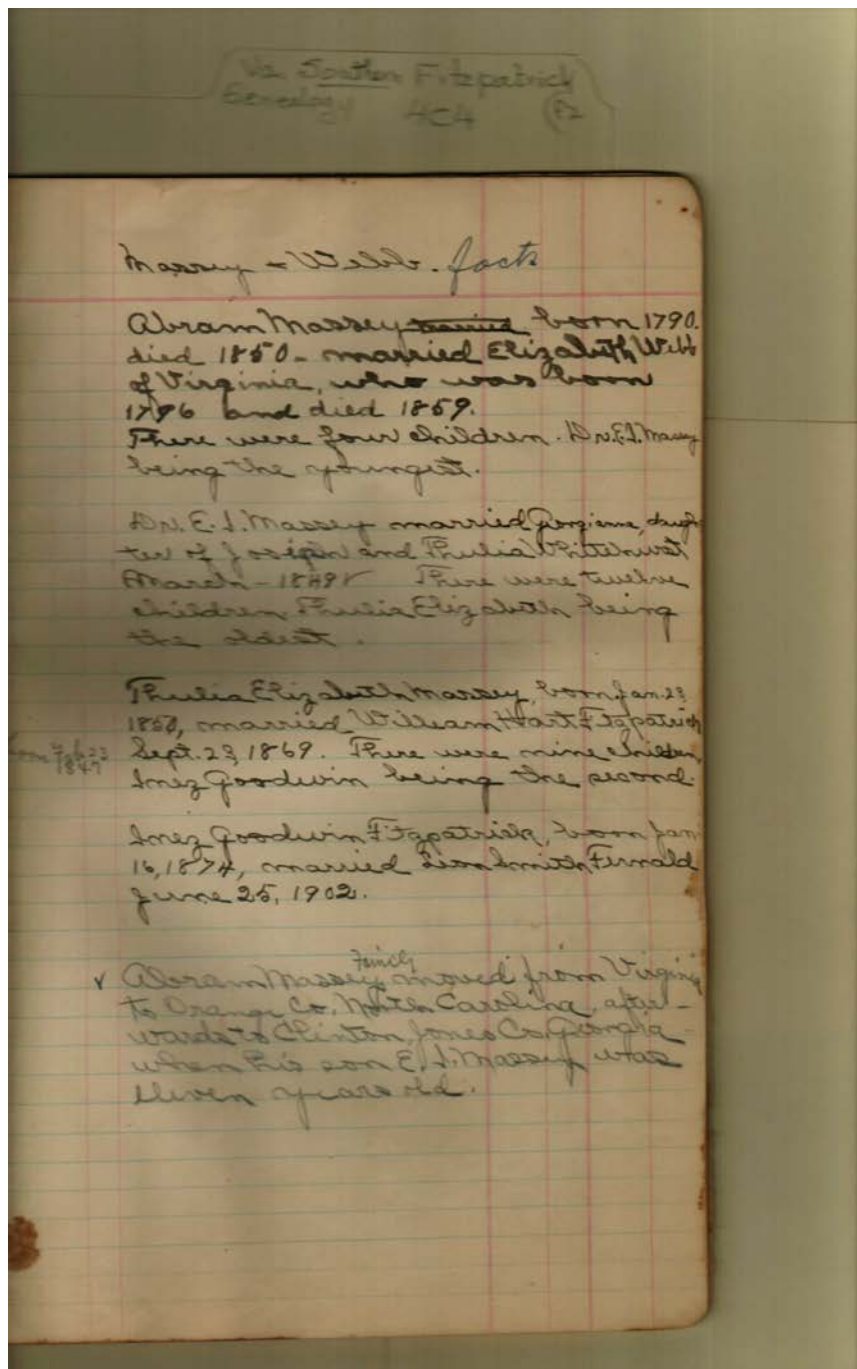 Va. Southern Fitzpatrick
Genealogy 4C4 F2
Massey + Webb. facts
Abram Massey married born 1790.
died 1850 - married Elizabeth Webb
of Virginia, who was born
1796 and died 1859.
There were four children. Dr. E. J. Massey
being the youngest.
Dr. E. J. Massey married Georgienne, daugh-
ter of Joseph and Thulia Whitehurst
March - 1849 There were twelve
children Thulia Elizabeth being
the oldest.
Thulia Elizabeth Massey, born Jan. 23
1850, married William Hart Fitzpatrick
born Feb 22 1847
Sept. 23, 1869. There were nine children,
Inez Goodwin being the second.
Inez Goodwin Fitzpatrick, born Jan.
16, 1874, married Leon Smith Fernald
June 25, 1902.
v Abram Massey family moved from Virginia
to Orange Co. North Carolina, after-
wards to Clinton, Jones Co. Georgia
when his son E. J. Massey was
eleven years old.